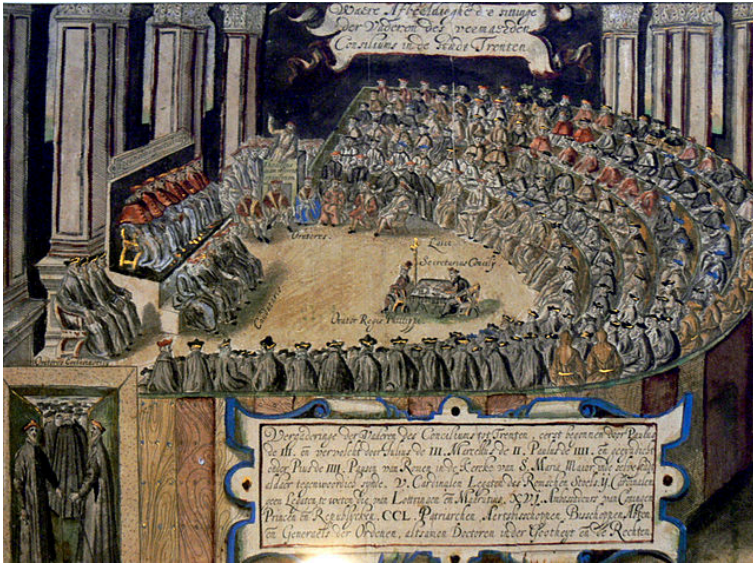 Waere Afbeeldinghe des sittinge
der Vaderen des vermaerden
Consiliums in de Stadt Trenten
Oratores
Laici
Secretarius Concilij
Orator Regis Philippi
Oratores Ecclesiastici
Vergaderinge der Vaderen des Conciliums tot Trenten, eerst begonnen door Paulus
de III. en vervolcht door Julius de III. Marcellus de II. Paulus de IIII. en geeyndicht
onder Pius de IIII. Pausen van Romen in de Kercke van S. Maria Maior
aldaer tegenwoordich synde. V. Cardinalen Legaten des Roomschen Stoels. II. Cardinalen
geen Legaten te weten die van Lottringen en Madrutius. XVI. Ambassadeurs van Coningen
Princen en Republycken. CCL. Patriarchen, Aertsbisschoppen, Bisschoppen, Abten
en Generaels der Ordenen, altsamen Doctoren inder Gootheyt en de Rechten